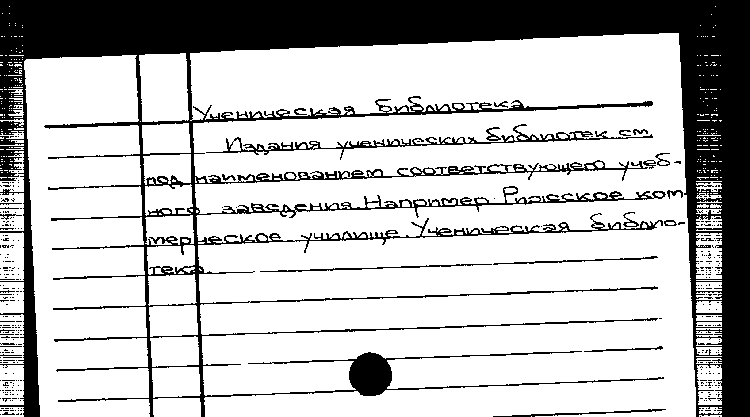 Ученическая библиотека.
Издания ученических библиотек см.
под наименованием соответствующего учеб-
ного заведения. Например Рижское ком-
мерческое училище. Ученическая библио-
тека.